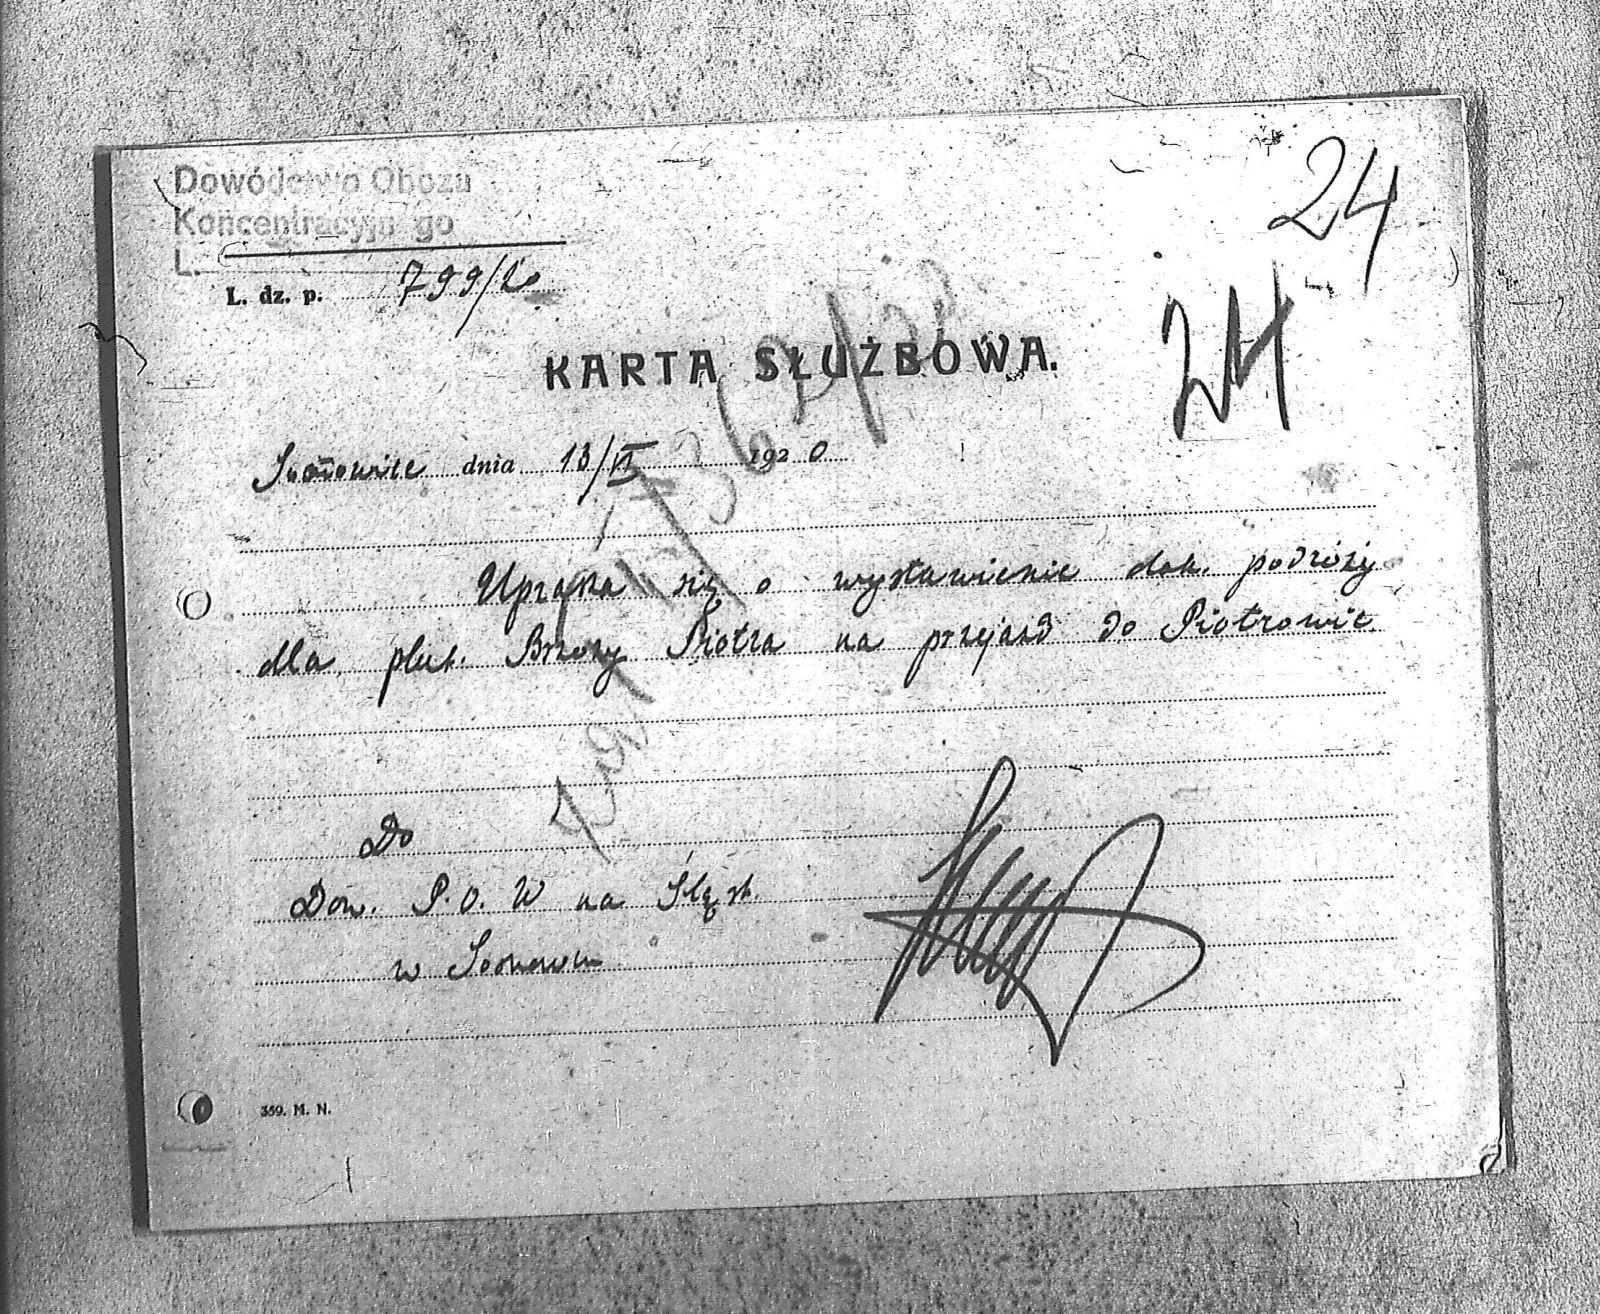 Dowództwo Obozu
Koncentracyjn go
L.
L. dz. p. 799/20
24
24
KARTA SŁUŻBOWA.
Sosnowiec dnia 13/VI 1920
Uprasza się o wystawienie dok. podróży
dla plut. Brzozy Piotra na przejazd do Piotrowic.
Do
Dow. P.O.W na Śląsk.
w Sosnowcu
359. M. N.